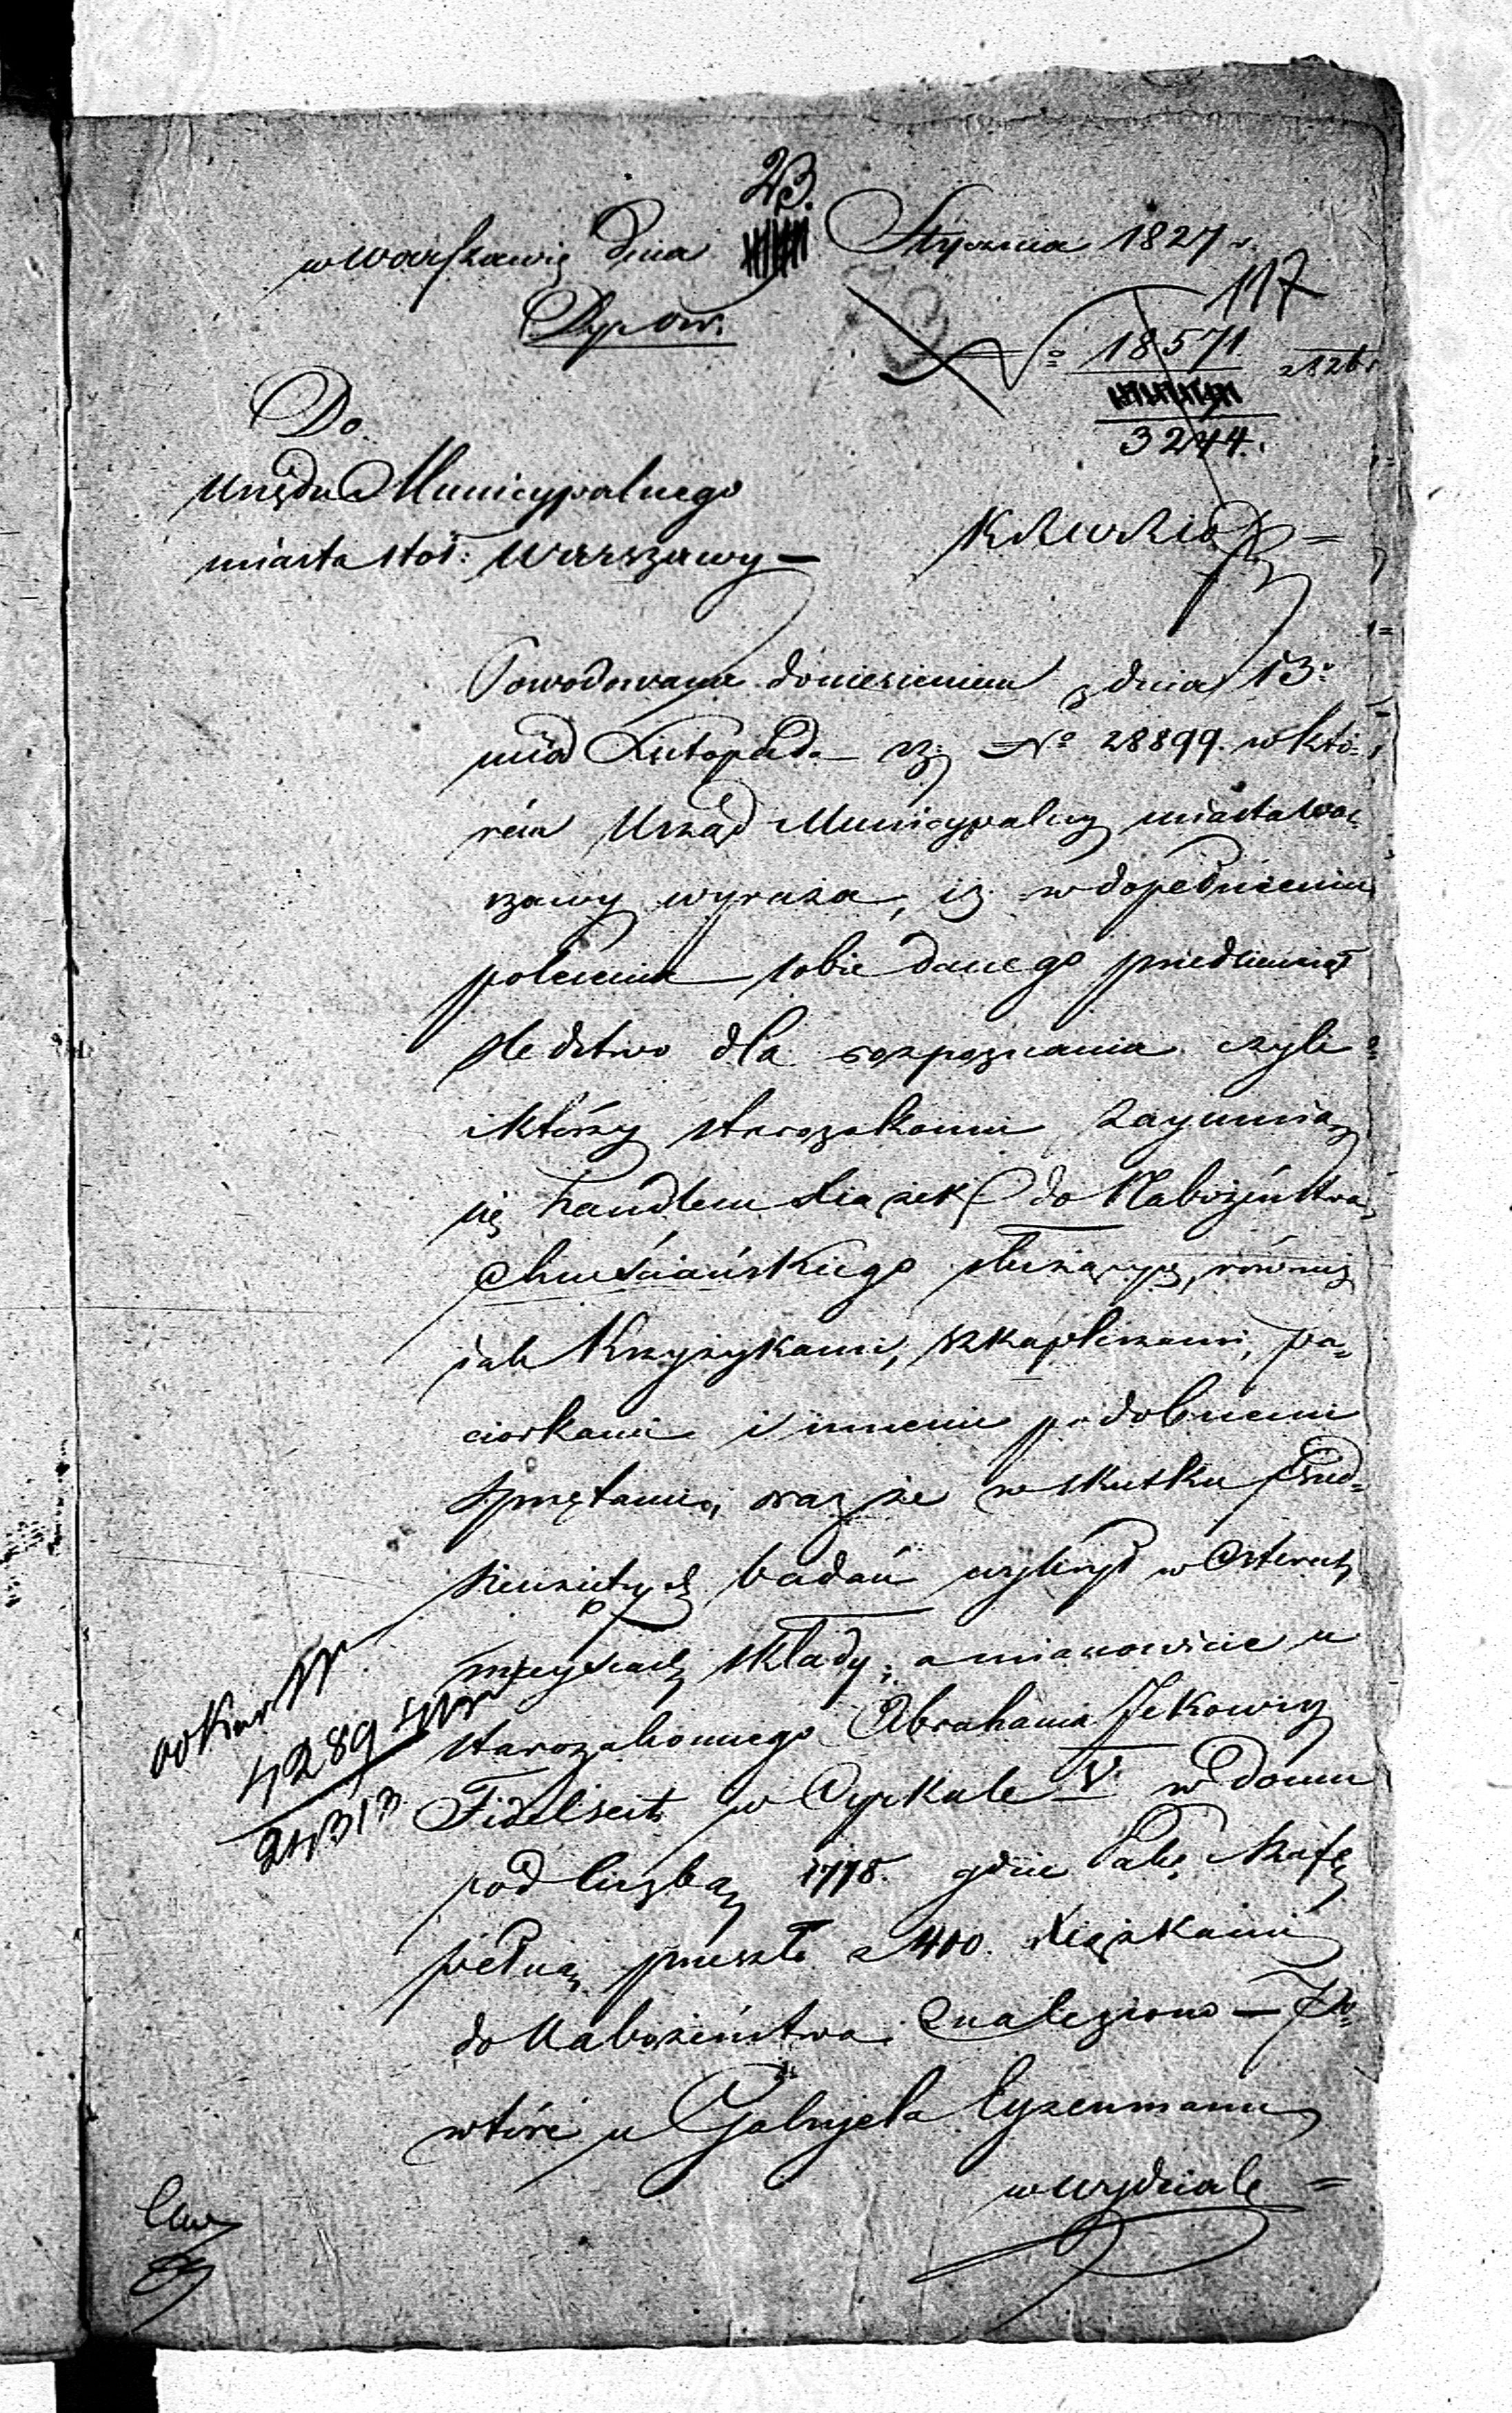 23.
w Warszawie dnia Stycznia 1827 r.
117
Dyr. Ow.
No: 18571. 1826 r
3244.
Do
Urzędu Municypalnego
miasta stoł: Warszawy —
Powodowana doniesieniem z dnia 13o
Listopada No 28899. w któ-
rém Urząd Municypalny miasta War-
szawy wyraża, iż w dopełnieniu
polecenia sobie danego przedsięwziął
śledztwo dla rozpoznania czyli
i którzy starozakonni zaymuią
się handlem Xiążek do Nabożeństwa
Chrześciańskiego służących, również
iak Krzyżykami, szkaplerzami, pa-
ciorkami i innemi podobnemi
sprzętami, oraz że w skutku przed-
sięwziętych badań wykrył w czterech
mieyscach składy; a mianowicie u
starozakonnego Abrahama Jckowicz
Fidelseit w Cyrkule V. w domu
pod liczbą 1778. gdzie całą szafę
pełną przeszło 400. Xiążkami
do Nabożeństwa znaleziono — Po-
wtóre u Gabryela Eyzenmann
w wydziale =
4289
24313